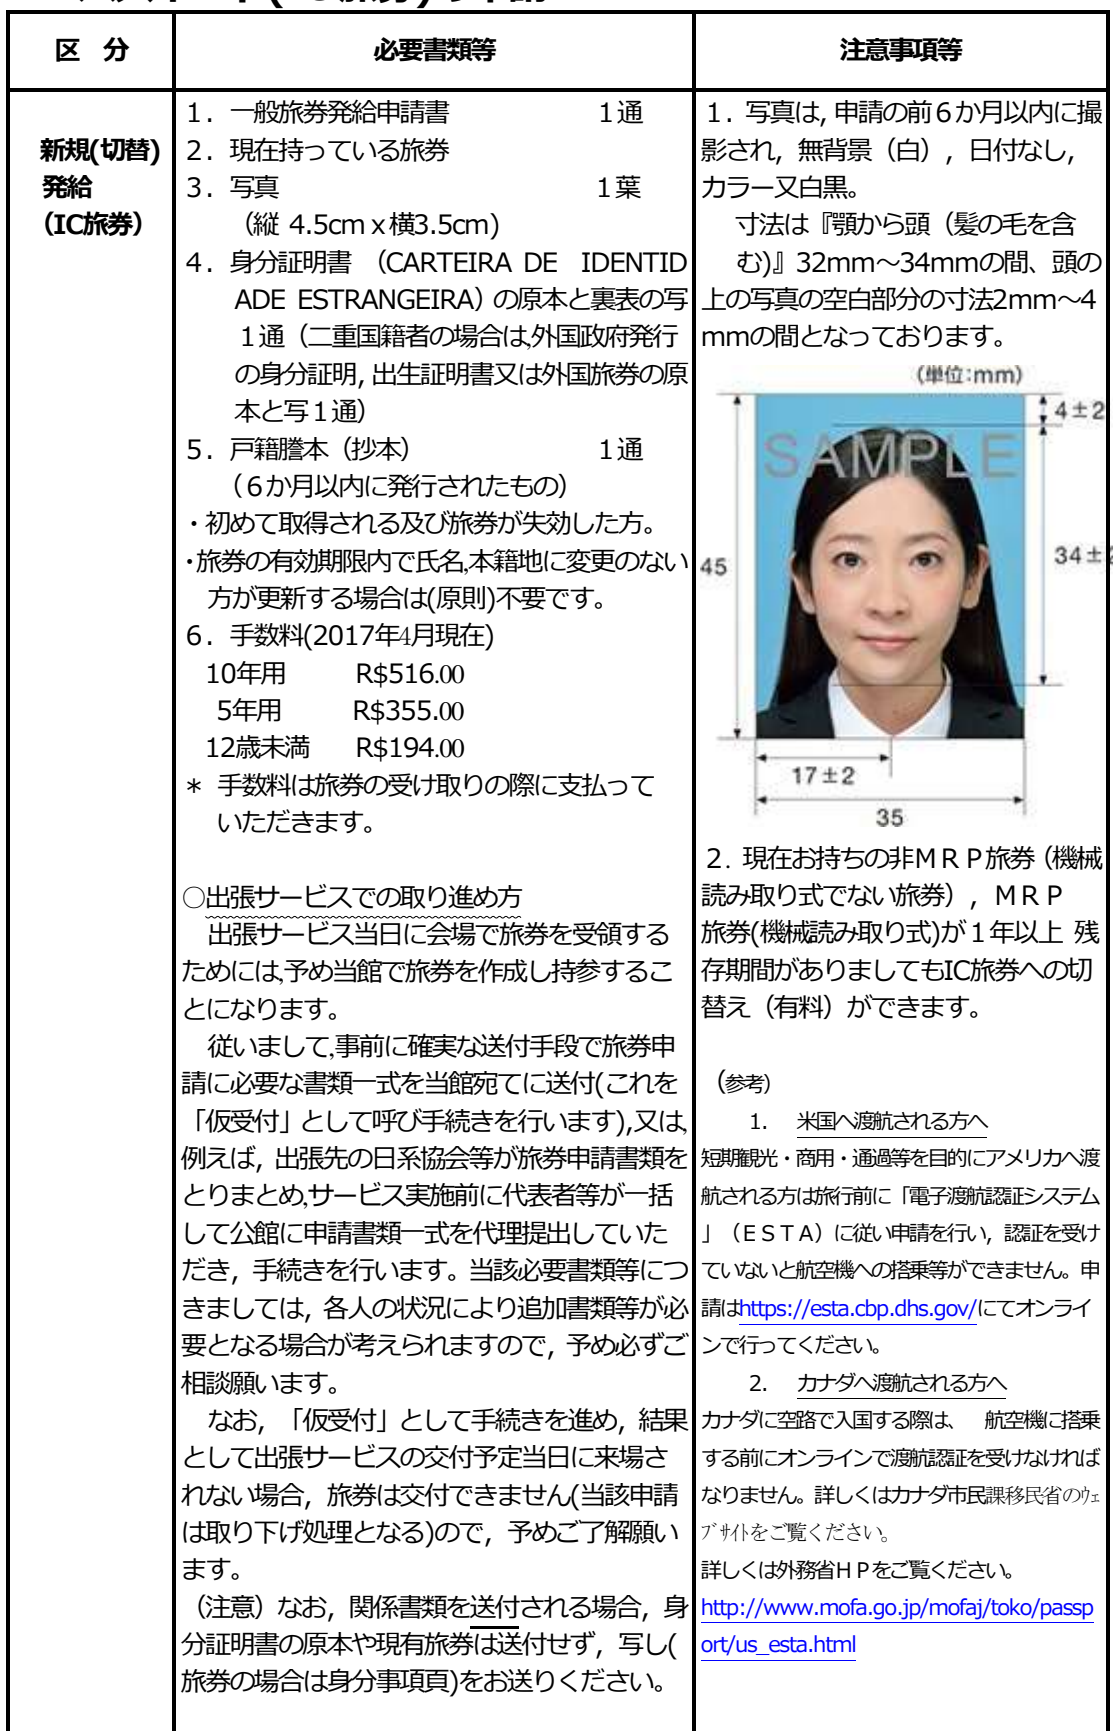 区　分
必要書類等
注意事項等
新規(切替)
発給
（IC旅券）
１．一般旅券発給申請書　１通
２．現在持っている旅券
３．写真　１葉
（縦 4.5cmｘ横3.5cm)
４．身分証明書　（CARTEIRA DE　IDENTID
ADE ESTRANGEIRA）の原本と裏表の写
１通（二重国籍者の場合は,外国政府発行
の身分証明, 出生証明書又は外国旅券の原
本と写１通）
５．戸籍謄本（抄本）　１通
（６か月以内に発行されたもの）
・初めて取得される及び旅券が失効した方。
・旅券の有効期限内で氏名,本籍地に変更のない
方が更新する場合は(原則)不要です。
６．手数料(2017年4月現在)
10年用　R$516.00
5年用　R$355.00
12歳未満　R$194.00
＊ 手数料は旅券の受け取りの際に支払って
いただきます。
○出張サービスでの取り進め方
出張サービス当日に会場で旅券を受領する
ためには,予め当館で旅券を作成し持参するこ
とになります。
従いまして,事前に確実な送付手段で旅券申
請に必要な書類一式を当館宛てに送付(これを
「仮受付」として呼び手続きを行います),又は,
例えば, 出張先の日系協会等が旅券申請書類を
とりまとめ,サービス実施前に代表者等が一括
して公館に申請書類一式を代理提出していた
だき, 手続きを行います。当該必要書類等につ
きましては, 各人の状況により追加書類等が必
要となる場合が考えられますので, 予め必ずご
相談願います。
なお, 「仮受付」として手続きを進め, 結果
として出張サービスの交付予定当日に来場さ
れない場合, 旅券は交付できません(当該申請
は取り下げ処理となる)ので, 予めご了解願い
ます。
（注意）なお, 関係書類を送付される場合, 身
分証明書の原本や現有旅券は送付せず, 写し(
旅券の場合は身分事項頁)をお送りください。
１. 写真は, 申請の前６か月以内に撮
影され, 無背景（白）, 日付なし,
カラー又白黒。
寸法は『顎から頭（髪の毛を含
む)』32mm～34mmの間、頭の
上の写真の空白部分の寸法2mm～4
mmの間となっております。
（単位:mm）
4±2
SAMPLE
45
34±2
17±2
35
２. 現在お持ちの非ＭＲＰ旅券（機械
読み取り式でない旅券）, ＭＲＰ
旅券(機械読み取り式)が１年以上 残
存期間がありましてもIC旅券への切
替え（有料）ができます。
（参考）
1.　米国へ渡航される方へ
短期観光・商用・通過等を目的にアメリカへ渡
航される方は旅行前に「電子渡航認証システム
」（ＥＳＴＡ）に従い申請を行い, 認証を受け
ていないと航空機への搭乗等ができません。申
請はhttps://esta.cbp.dhs.gov/にてオンライ
ンで行ってください。
2.　カナダへ渡航される方へ
カナダに空路で入国する際は、　航空機に搭乗
する前にオンラインで渡航認証を受けなければ
なりません。詳しくはカナダ市民課移民省のｳｪ
ﾌﾞｻｲﾄをご覧ください。
詳しくは外務省ＨＰをご覧ください。
http://www.mofa.go.jp/mofaj/toko/passp
ort/us_esta.html